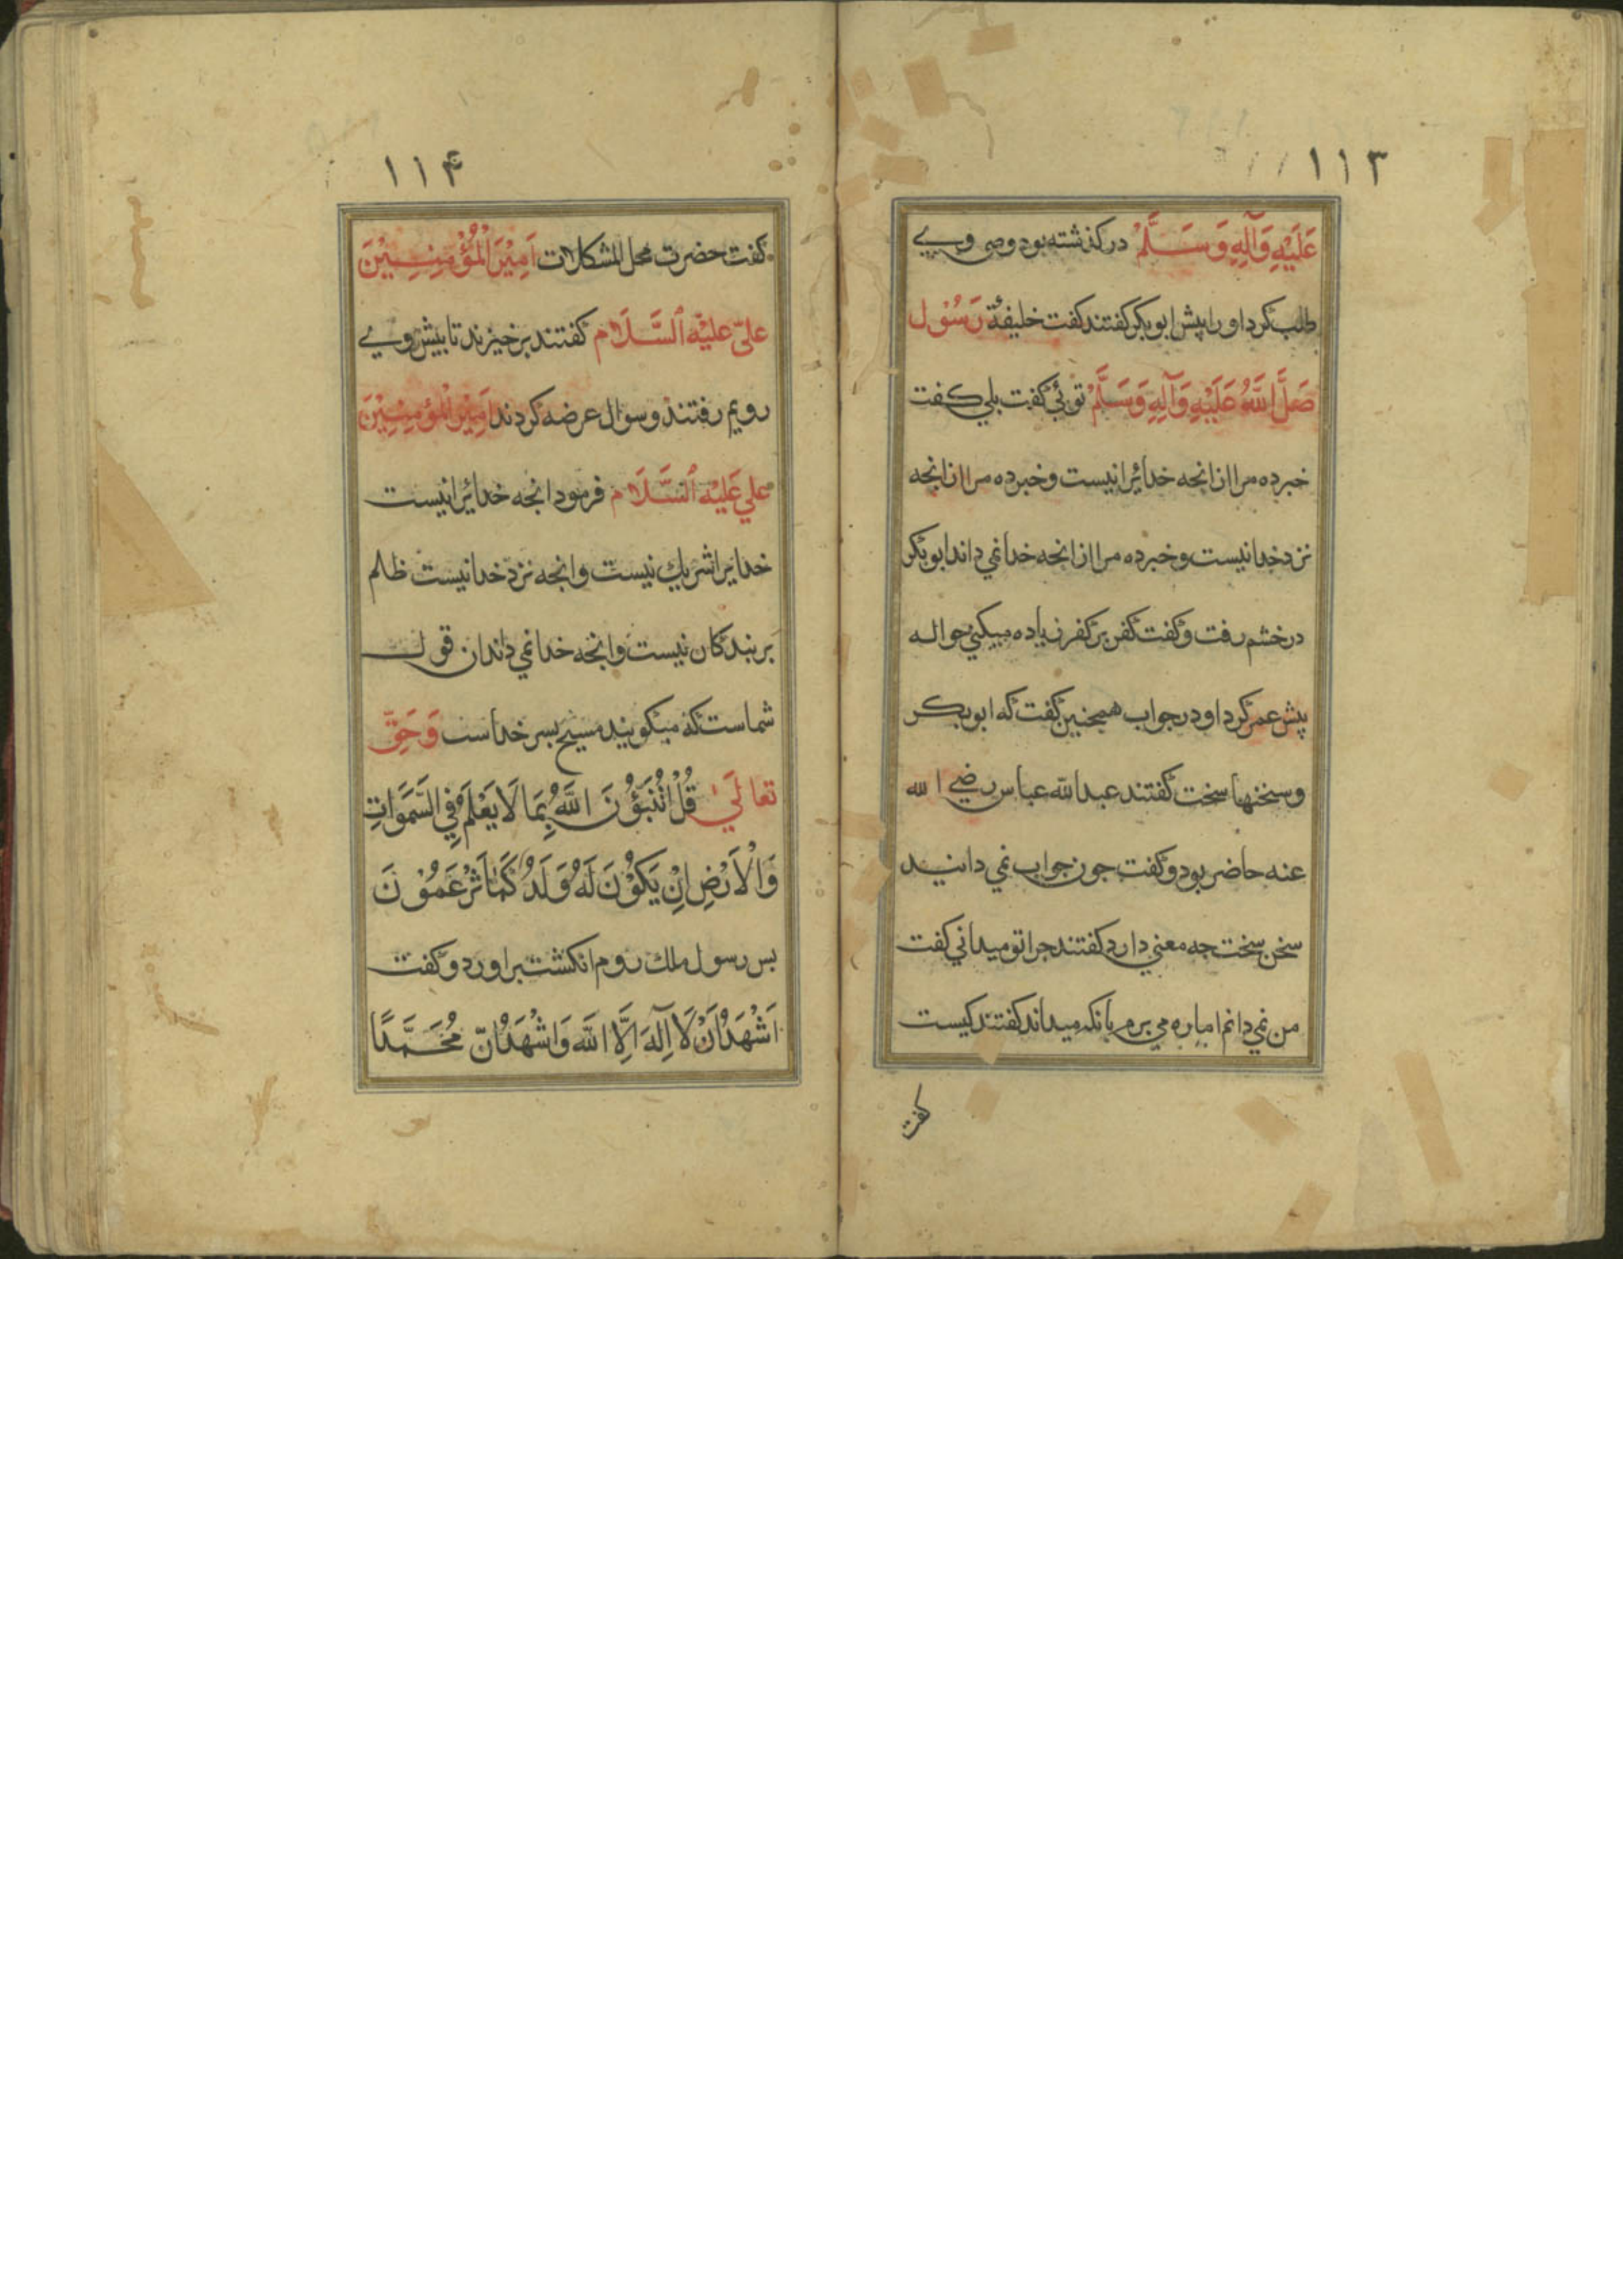 ١١٣
عَلَيْهِ وَآلِهِ وَسَلَّمْ درکذشته بود وصی وی
طلب کرد او را پیش ابوبکر کفتند کفت خلیفهٔ رَسُوْل
صَلَّ اللَّهُ عَلَيْهِ وَآلِهِ وَسَلَّمْ توئي کفت بلي کفت
خبر ده مرا از انجه خدائرا نیست و خبر ده مرا از انجه
نزد خدا نیست و خبر ده مرا از انجه خدا نمي داند ابوبکر
در خشم رفت و کفت کفر بر کفر زیاده میکني حواله
پیش عمر کرد او در جواب همجنین کفت که ابوبکر
و سخنها سخت کفتند عبدالله عباس رضي الله
عنه حاضر بود و کفت جون جواب نمي دانید
سخن سخت جه معني دارد کفتند جرا تو میداني کفت
من نمي دانم اما ره مي برم بانکه میداند کفتند کیست
کفت
١١۴
کفت حضرت محل المشکلات اَمِيْنَ الْمُؤْمِنِيْنَ
علیّ عليْه ٱلسَّلَام کفتند برخیزند تا بیش وي
رویم رفتند و سوال عرضه کردند اَمِيْرَ الْمُؤْمِنِيْنَ
علي عَلَيْه ٱلسَّلَام فرمود انجه خدائرا نیست
خدایرا شریك نیست و انجه نزد خدا نیست ظلم
بر بندکان نیست و انجه خدا نمي داند ان قول
شماست که میکویید مسیح بسر خداست وَحَقّ
تعالَي قُلْ اَتُنَبِّؤُنَ اللَّهَ بِمَا لَا يَعْلَمُ فِي السَّمَوَاتِ
وَالْاَرْضِ اِنْ يَكُوْنَ لَهُ وَلَدُ كَمَا تَزْعَمُوْنَ
بس رسول ملك روم انکشت براورد و کفت
اَشْهَدُ اَنْ لَا اِلَهَ اِلَّا اللَّه وَاَشْهَدُ اَنّ مُحَمَّدًا